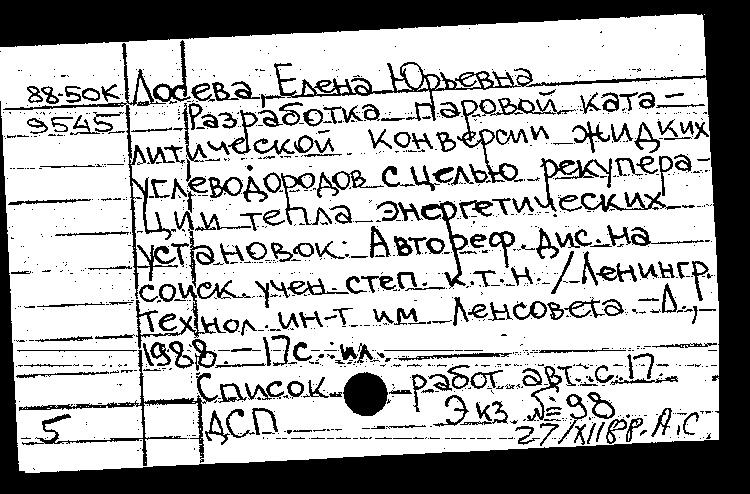 88-50К Лосева, Елена Юрьевна
9545 Разработка паровой ката-
литической конверсии жидких
углеводородов с целью рекупера-
ции тепла энергетических
установок: Автореф. дис. на
соиск. учен. степ. к.т.н. / Ленингр.
технол. ин-т им Ленсовета. - Л.,
1988. - 17с. : ил.
Список работ авт.: с. 17
5 ДСП Экз. № 98
27/XII 88г. А.С.